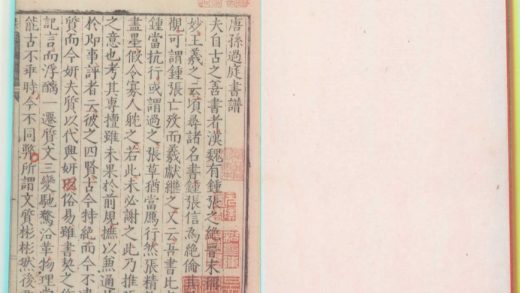 唐孫過庭書譜
夫自古之善書者漢魏有鍾張之絕晉末稱
妙王羲之云頃尋諸名書鍾張信爲絕倫其
觀可謂鍾張亡歿而羲獻繼之又云吾書比
鍾當抗行或謂過之張草猶當鴈行然張精
盡墨假令寡人耽之若此未必謝之此乃推
之意也考其專擅雖未果於前規摭以兼通
於即事評者云彼之四賢古今特絕而今不
質而今妍夫質以代興妍因俗易雖書契之
記言而淳醨一遷質文三變馳騖沿革物理
能古不乖時今不同弊所謂文質彬彬然後